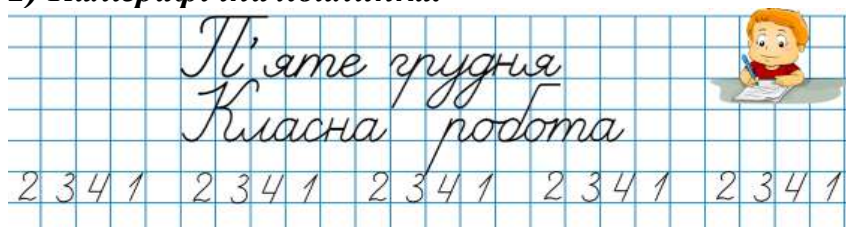 П'яте грудня
Класна робота
2 3 4 1 2 3 4 1 2 3 4 1 2 3 4 1 2 3 4 1